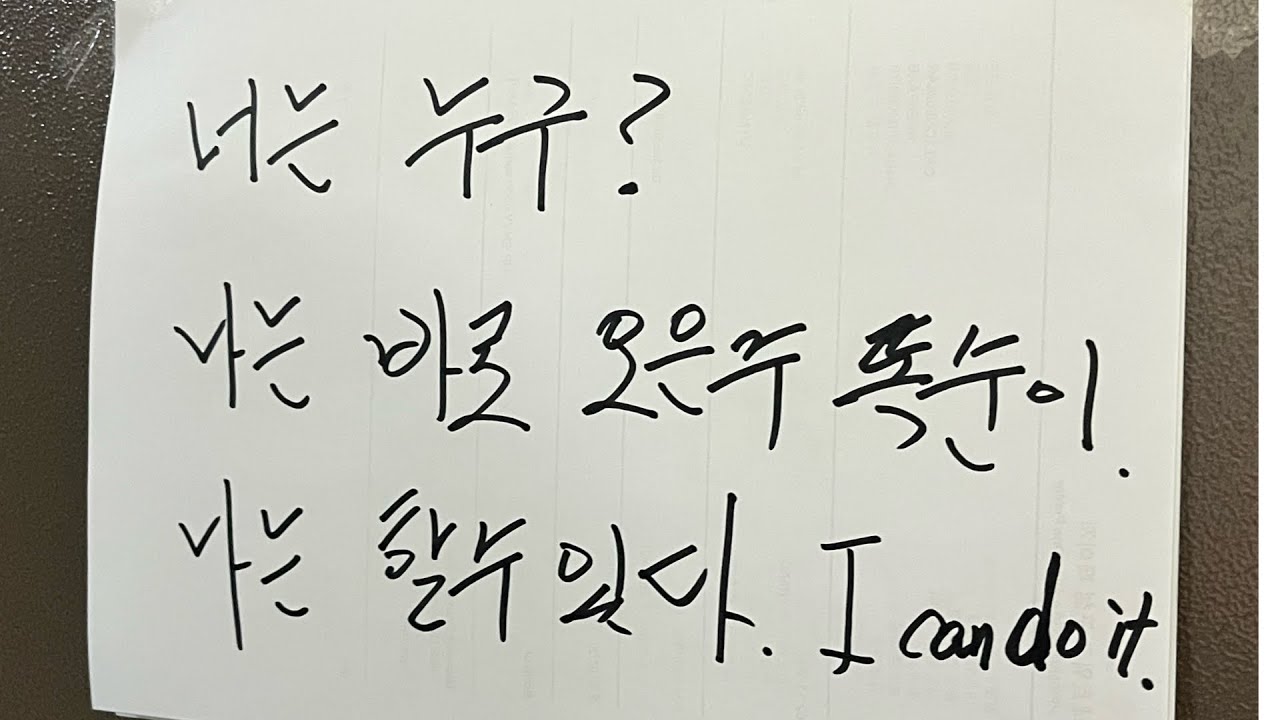 너는 누구?
나는 바로 오은주 똑순이.
나는 할수있다. I can do it.